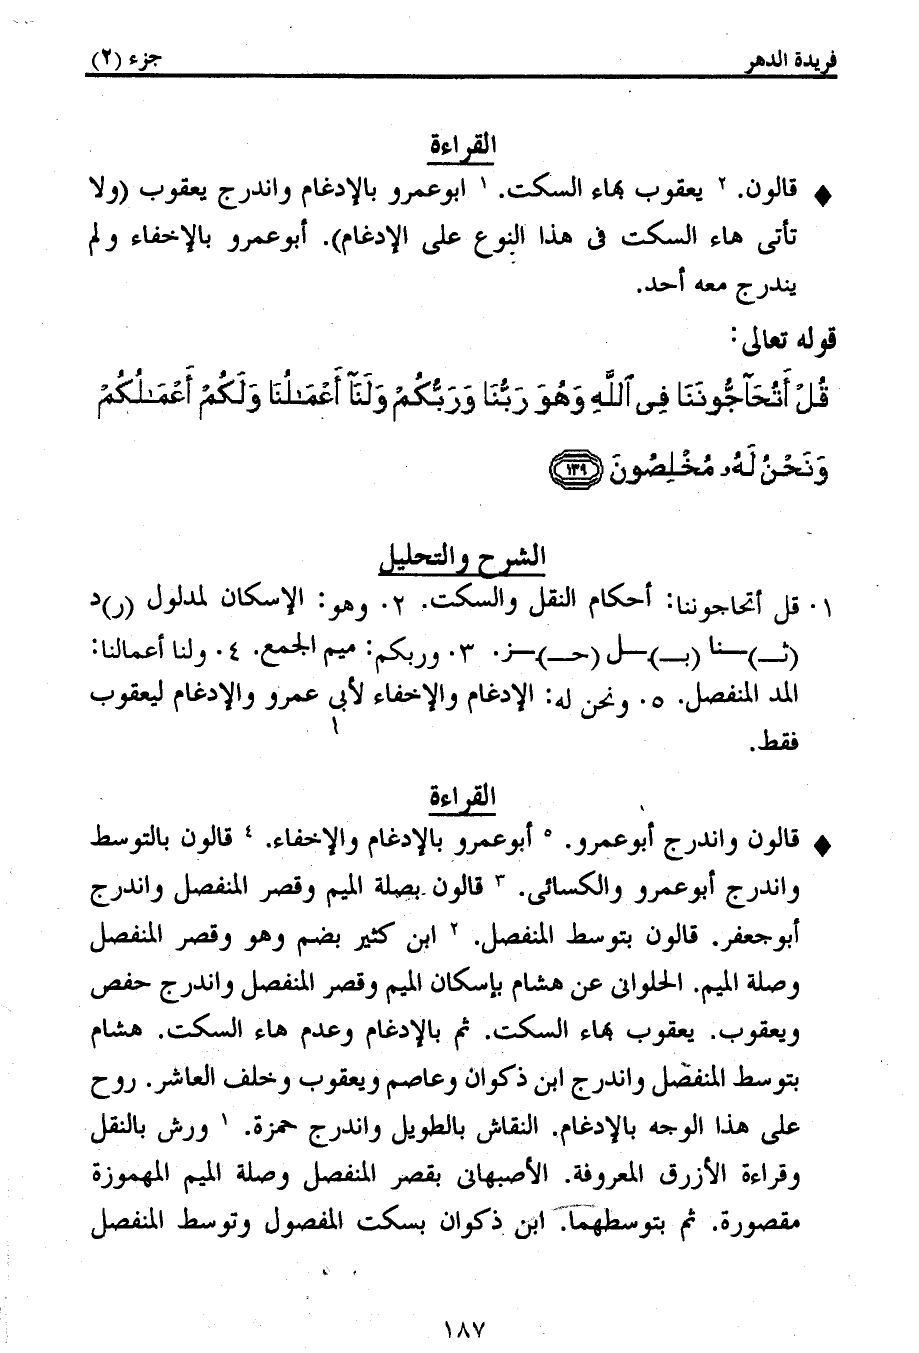 فريدة الدهر
جزء (٢)
القراءة
♦ قالون. ٢ يعقوب بهاء السكت. ١ ابوعمرو بالإدغام واندرج يعقوب (ولا
تأتى هاء السكت فى هذا النوع على الإدغام). أبوعمرو بالإخفاء ولم
يندرج معه أحد.
قوله تعالى:
قُلْ أَتُحَآجُّونَنَا فِى ٱللَّهِ وَهُوَ رَبُّنَا وَرَبُّكُمْ وَلَنَآ أَعْمَـٰلُنَا وَلَكُمْ أَعْمَـٰلُكُمْ
وَنَحْنُ لَهُۥ مُخْلِصُونَ ١٣٩
الشرح والتحليل
٠١ قل أتحاجوننا: أحكام النقل والسكت. ٠٢ وهو: الإسكان لمدلول (ر)د
(ثـ)ـنا (بـ)ـل (حـ)ـز. ٠٣ وربكم: ميم الجمع. ٠٤ ولنا أعمالنا:
المد المنفصل. ٠٥ ونحن له: الإدغام والإخفاء لأبي عمرو والإدغام ليعقوب
فقط.
القراءة
♦ قالون واندرج أبوعمرو. ٥ أبوعمرو بالإدغام والإخفاء. ٤ قالون بالتوسط
واندرج أبوعمرو والكسائى. ٣ قالون بصلة الميم وقصر المنفصل واندرج
أبوجعفر. قالون بتوسط المنفصل. ٢ ابن كثير بضم وهو وقصر المنفصل
وصلة الميم. الحلوانى عن هشام بإسكان الميم وقصر المنفصل واندرج حفص
ويعقوب. يعقوب بهاء السكت. ثم بالإدغام وعدم هاء السكت. هشام
بتوسط المنفصل واندرج ابن ذكوان وعاصم ويعقوب وخلف العاشر. روح
على هذا الوجه بالإدغام. النقاش بالطويل واندرج حمزة. ١ ورش بالنقل
وقراءة الأزرق المعروفة. الأصبهانى بقصر المنفصل وصلة الميم المهموزة
مقصورة. ثم بتوسطهما. ابن ذكوان بسكت المفصول وتوسط المنفصل
١٨٧